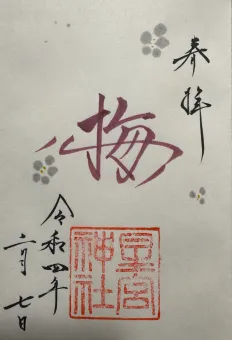 奉拝
梅
令和四年
二月七日
星宮
神社